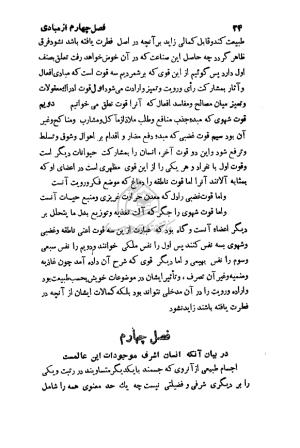 ۳۴ فصل چهارم از مبادی
طبیعت کند و قابل کمالی زاید بر آنچه در اصل فطرت یافته باشد نشود و فرق
ظاهر گردد چه حاصل این صناعت که در آن خوض خواهد رفت تعلق بصنف
اول دارد پس گوئیم از این قوی که بر شمردیم سه قوت است که مبادی افعال
و آثار بمشارکت رأی و رویت و تمیز و ارادت میشود اول قوت ادراک معقولات
و تمییز میان مصالح و مفاسد افعال که آنرا قوت نطق می خوانیم دویم
قوت شهوی که مبدء جذب منافع و طلب ملاذ از مآکل و مشارب و مناکح و غیر
آن بود سیم قوت غضبی که مبدء دفع مضار و اقدام بر اهوال و شوق تسلط
و ترفع شود و این دو قوت آخر، انسان را بمشارکت حیوانات دیگر است
و قوت اول با نفراد و هر یکی را از این قوی مظهری است در اعضا او که
بمثابه آلاتند آنرا اما قوت ناطقه را دماغ که موضع فکر و رویت آنست
و اما قوت غضبی را دل که معدن حرارت غریزی و منبع حیات آنست
و اما قوت شهوی را جگر که آلت تغذیه و توزیع بدل ما یتحلل بر
دیگر اعضاء آنست و گاه بود که عبارت از این سه قوت اعنی ناطقه و غضبی
و شهوی بسه نفس کنند پس اول را نفس ملکی خوانند و دویم را نفس سبعی
و سوم را نفس بهیمی و اما دیگر قوی که شرح آن داده آمد چون غاذیه
و منمیه و غیر آن تصرف ، و تأثیر ایشان در موضوعات خویش بحسب طبیعت بود
و ارادت و رویت را در آن مدخلی نتواند بود بلکه کمالات ایشان از آنچه در
فطرت یافته باشند زاید نشود
فصل چهارم
در بیان آنکه انسان اشرف موجودات این عالمست
اجسام طبیعی از آنروی که جسمند با یکدیگر متساویند در رتبت و یکی
را بر دیگری شرفی و فضیلتی نیست چه یک حد معنوی همه را شامل